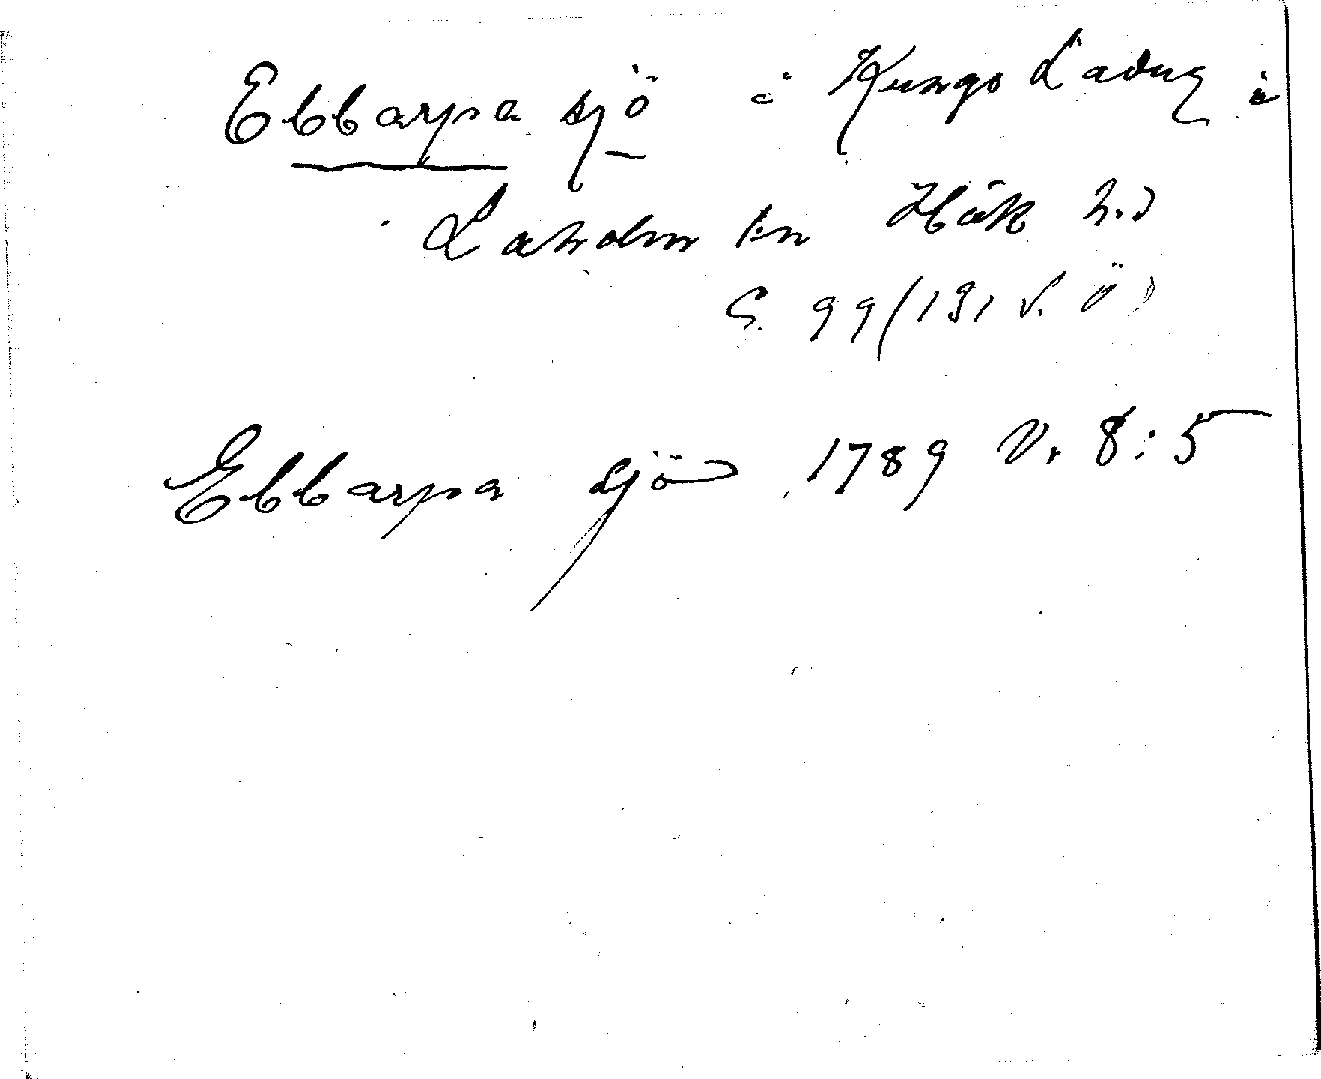 Ebbarpa sjö i Kungs Ladug i
Laholm ln Hök h.d
S. 99 (131 V. Ö)
Ebbarpa sjö 1789 V. 8:5